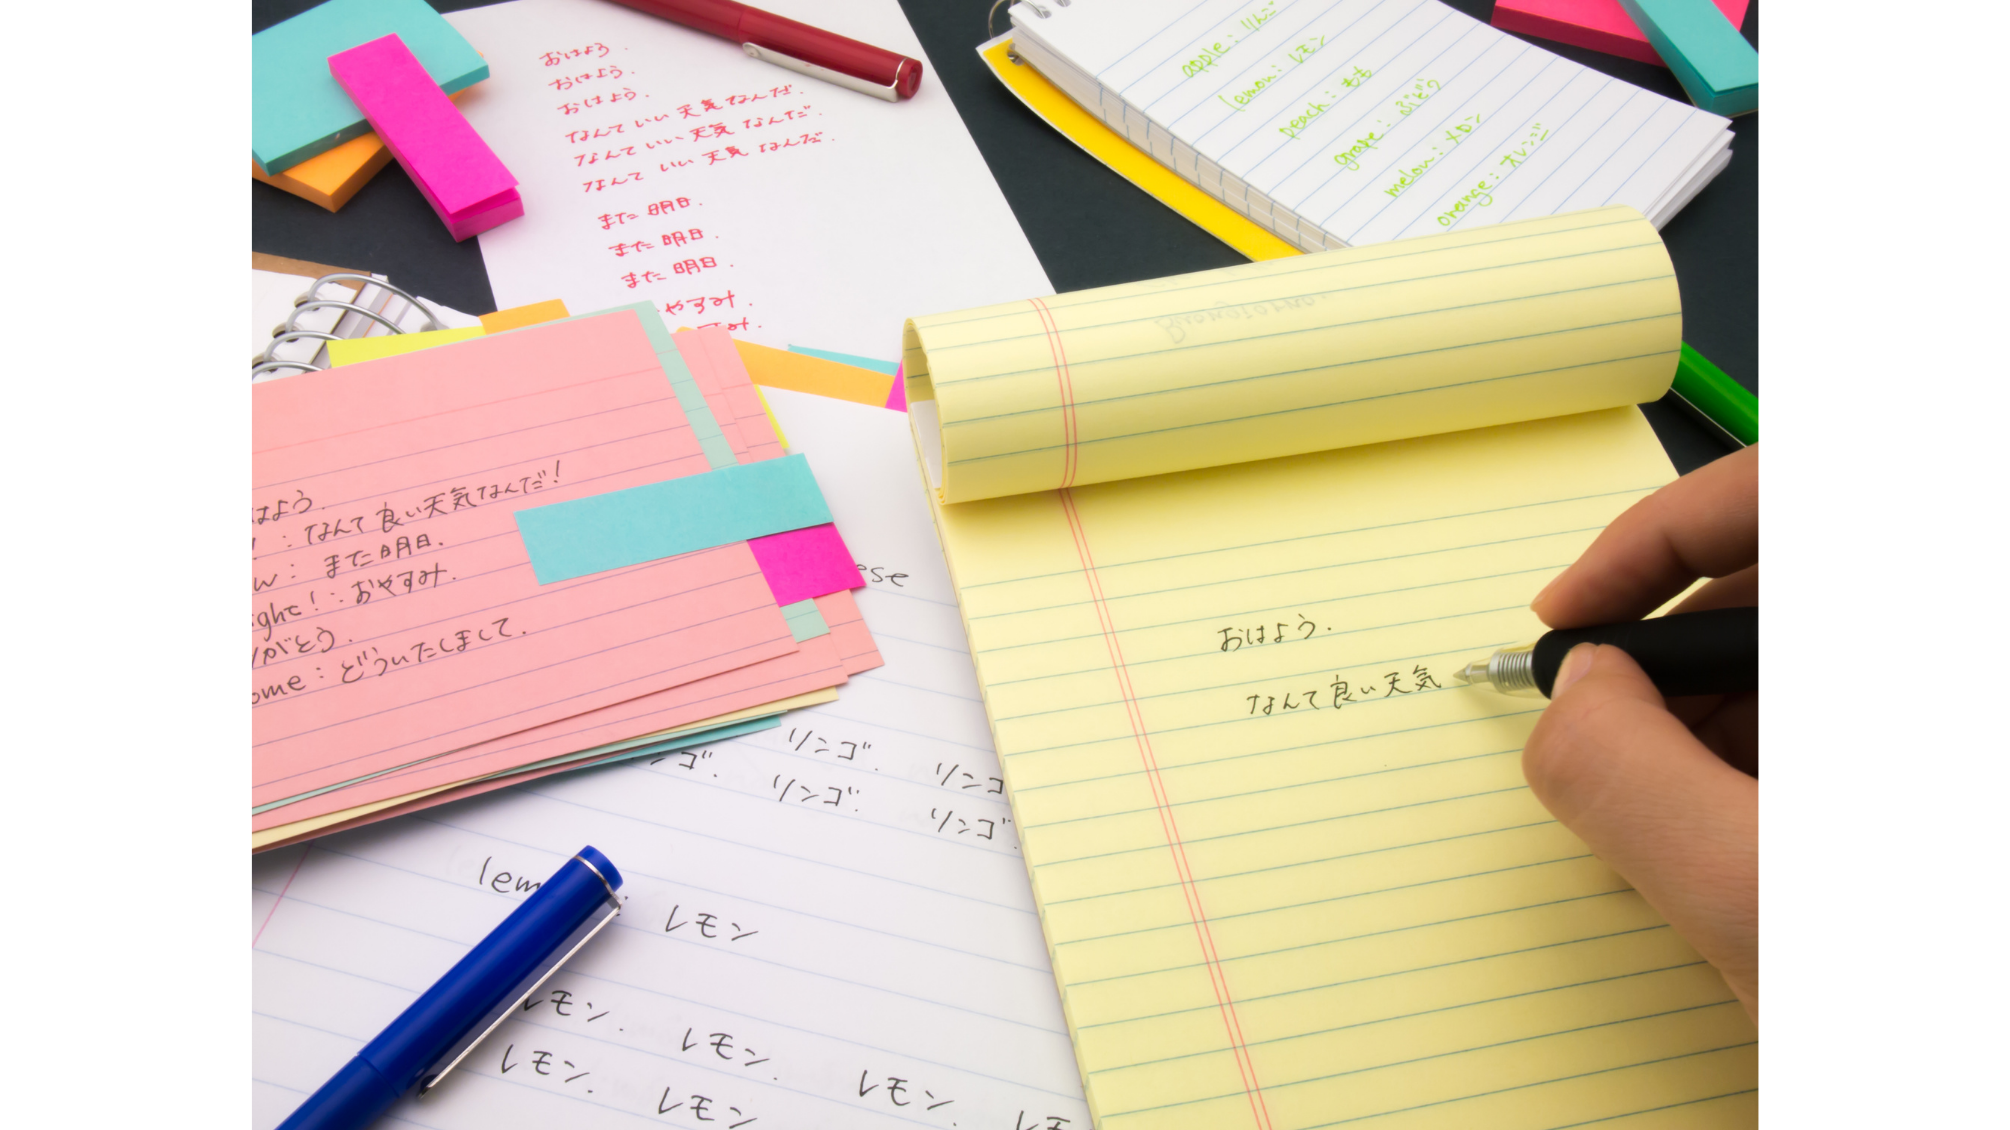 おはよう.
おはよう.
おはよう.
なんていい天気なんだ.
なんていい天気なんだ.
なんていい天気なんだ.
また明日.
また明日.
また明日.
やすみ.
すみ.
apple: りんご
lemon: レモン
peach: もも
grape: ぶどう
melon: メロン
orange: オレンジ
はよう.
: なんて良い天気なんだ!
w: また明日.
ight!: おやすみ.
がとう.
ome: どういたしまして.
ese
おはよう.
なんて良い天気
リンゴ. リンゴ
ンゴ. リンゴ. リンゴ.
lem
レモン
レモン. レモン. レモン.
レモン. レモン レモ